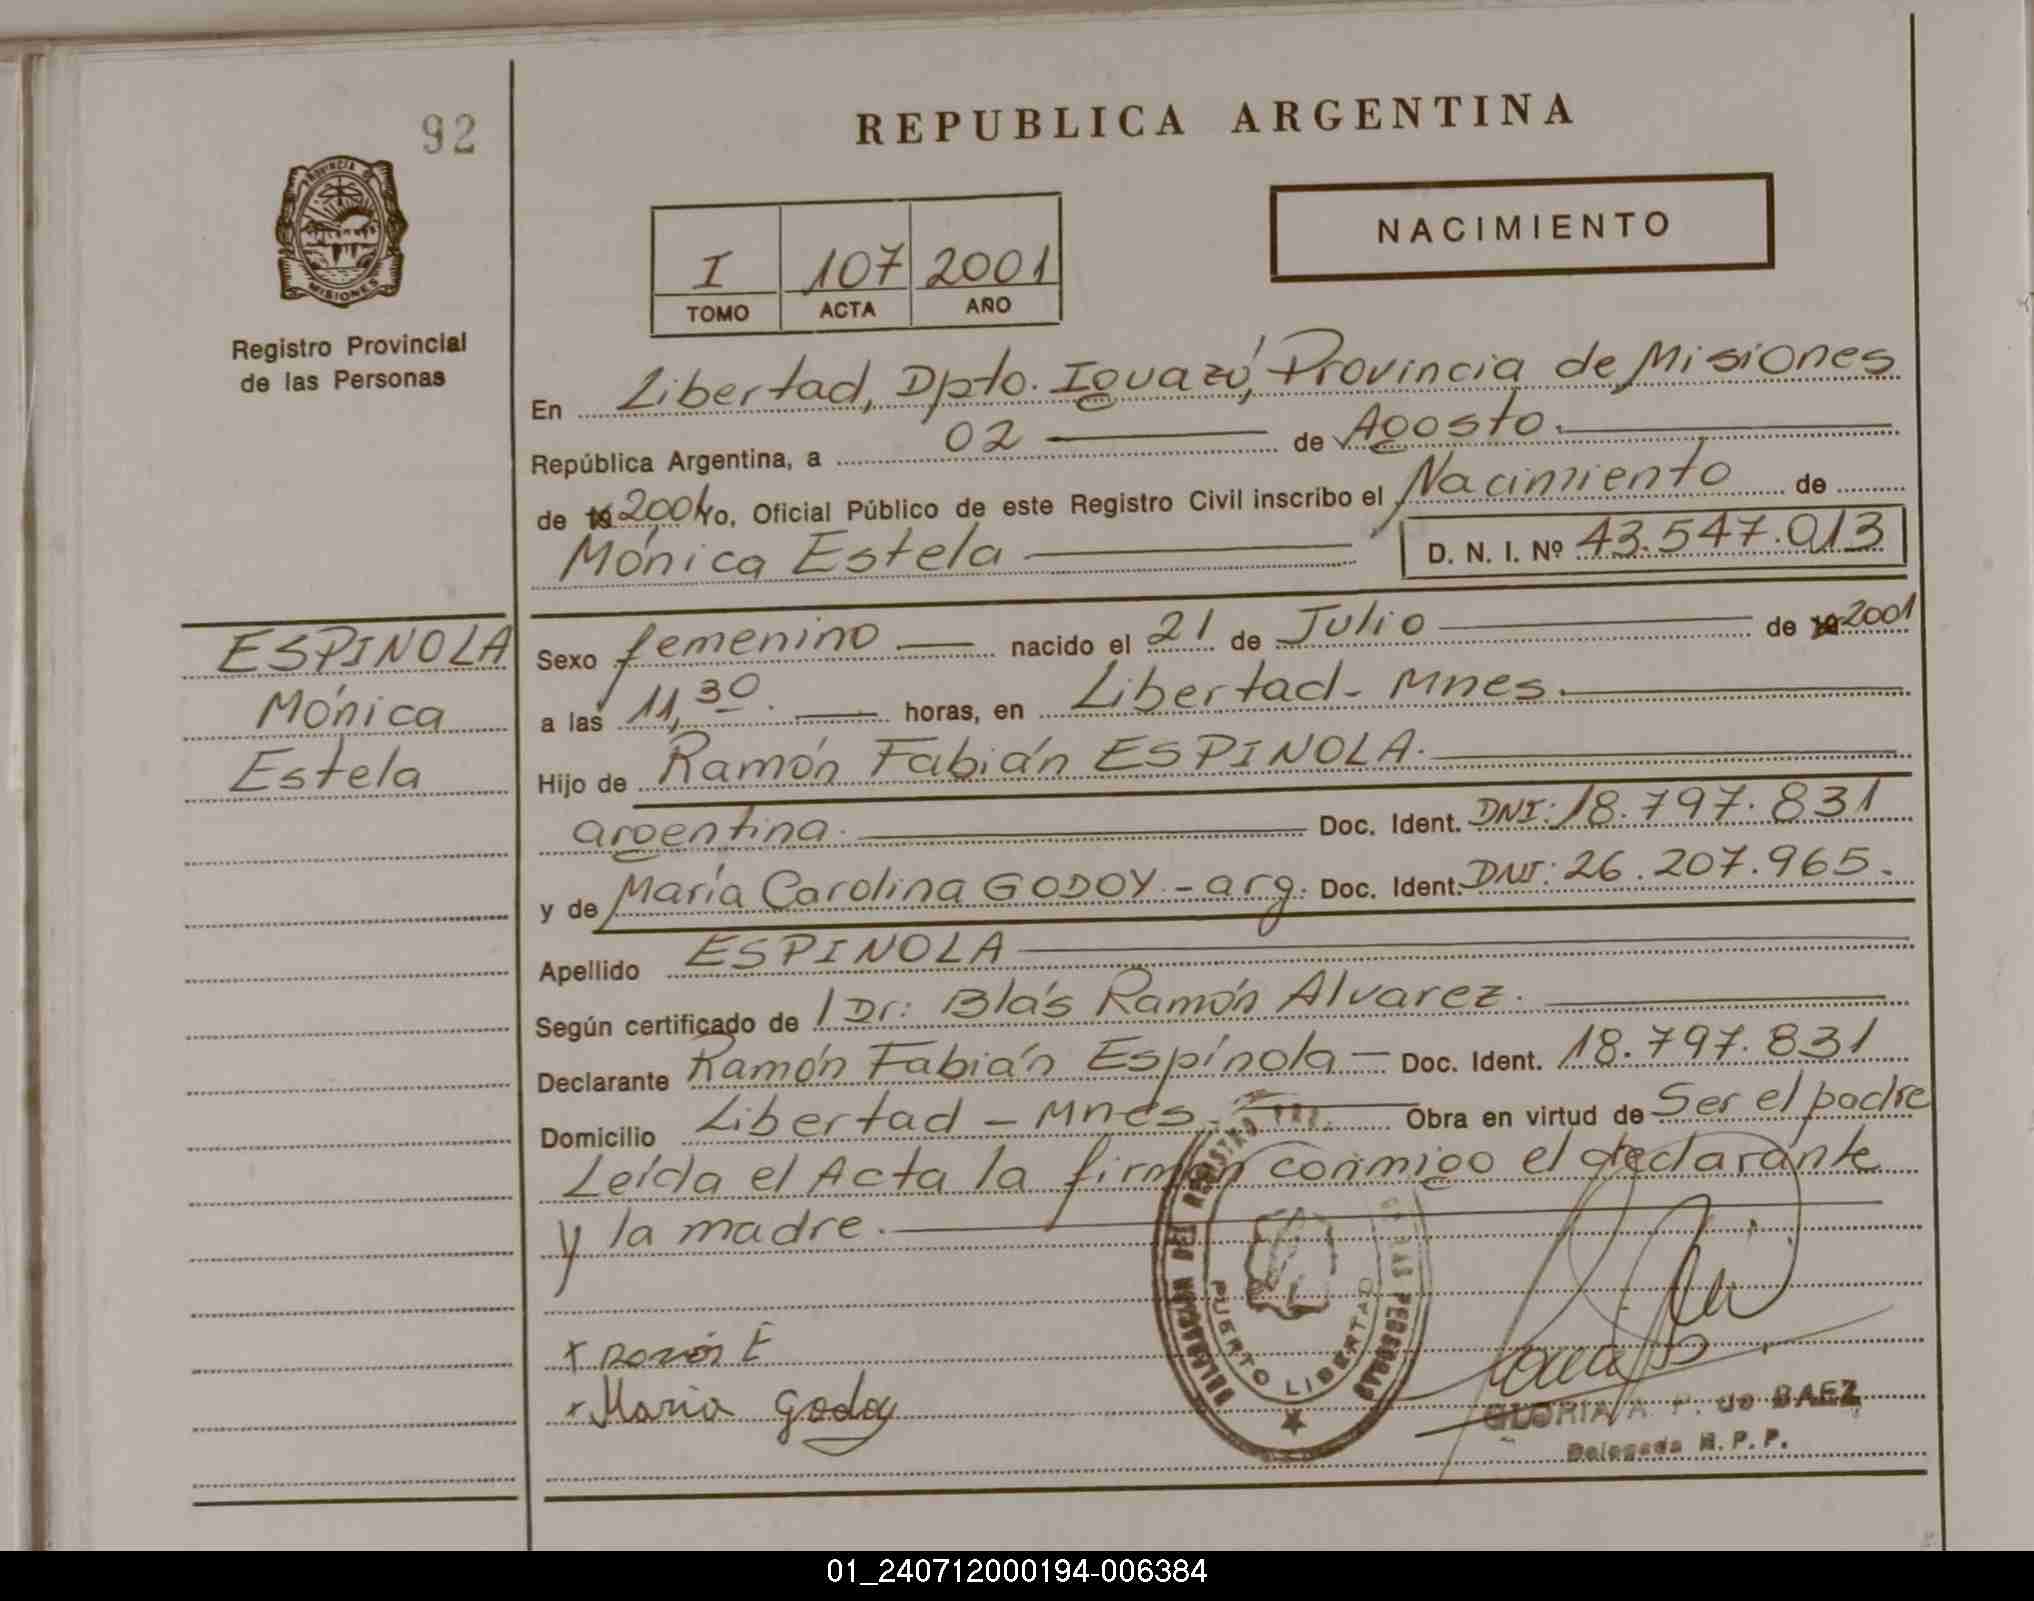 92
REPUBLICA ARGENTINA
PROVINCIA DE
MISIONES
Registro Provincial
de las Personas
NACIMIENTO
I 107 2001
TOMO ACTA AÑO
En Libertad, Dpto. Iguazú, Provincia de Misiones
República Argentina, a 02 de Agosto.
de 19 2001 Yo, Oficial Público de este Registro Civil inscribo el Nacimiento de
Mónica Estela D. N. I. Nº 43.547.013
ESPINOLA
Mónica
Estela
Sexo femenino nacido el 21 de Julio de 19 2001
a las 11,30. horas, en Libertad - Mnes.
Hijo de Ramón Fabián ESPINOLA.
argentina. Doc. Ident. DNI: 18.797.831
y de María Carolina GODOY. - arg. Doc. Ident. DNI: 26.207.965.
Apellido ESPINOLA
Según certificado de / Dr: Blás Ramón Alvarez.
Declarante Ramón Fabián Espínola - Doc. Ident. 18.797.831
Domicilio Libertad - Mnes. Obra en virtud de Ser el padre
Leída el Acta la firman conmigo el declarante
y la madre.
x Ramón E
x Maria Godoy
DELEGACION DEL REGISTRO DE LAS PERSONAS
PUERTO LIBERTAD
GLORIA A. P. de BAEZ
Delegada R. P. P.
01_240712000194-006384